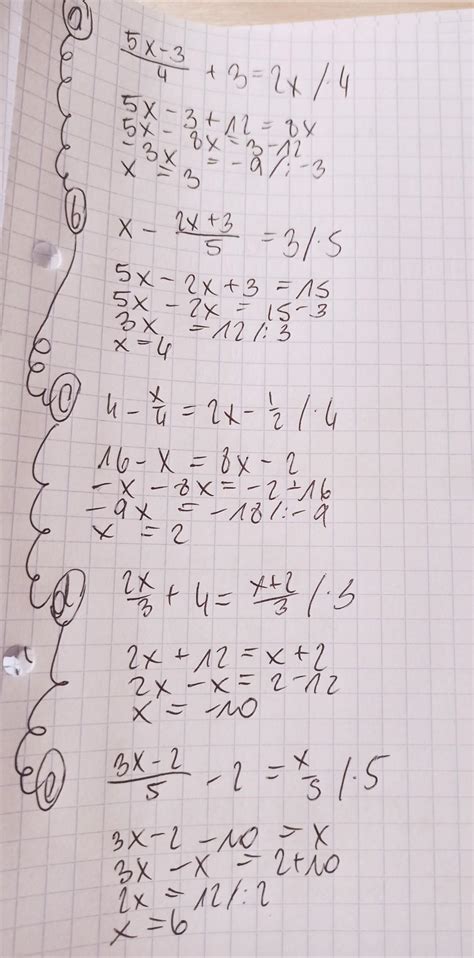 a) (5x-3)/4 + 3 = 2x /·4
5x - 3 + 12 = 8x
5x - 8x = 3 - 12
-3x = -9 /:-3
x = 3
b) x - (2x+3)/5 = 3 /·5
5x - 2x + 3 = 15
5x - 2x = 15 - 3
3x = 12 /:3
x = 4
c) 4 - x/4 = 2x - 1/2 /·4
16 - x = 8x - 2
-x - 8x = -2 + 16
-9x = -18 /:-9
x = 2
d) 2x/3 + 4 = (x+2)/3 /·3
2x + 12 = x + 2
2x - x = 2 - 12
x = -10
(3x-2)/5 - 2 = x/5 /·5
3x - 2 - 10 = x
3x - x = 2 + 10
2x = 12 /:2
x = 6